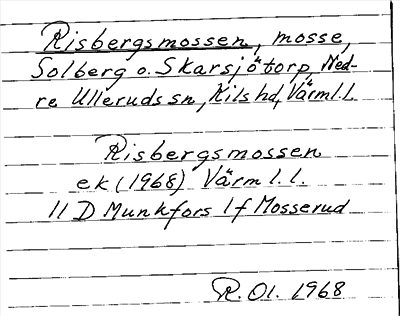 Risbergsmossen, mosse,
Solberg o. Skarsjötorp, Ned-
re Ulleruds sn, Kils hd, Värml. l.
Risbergsmossen
ek (1968) Värml. l.
11 D Munkfors 1 f Mosserud
R. Ol. 1968